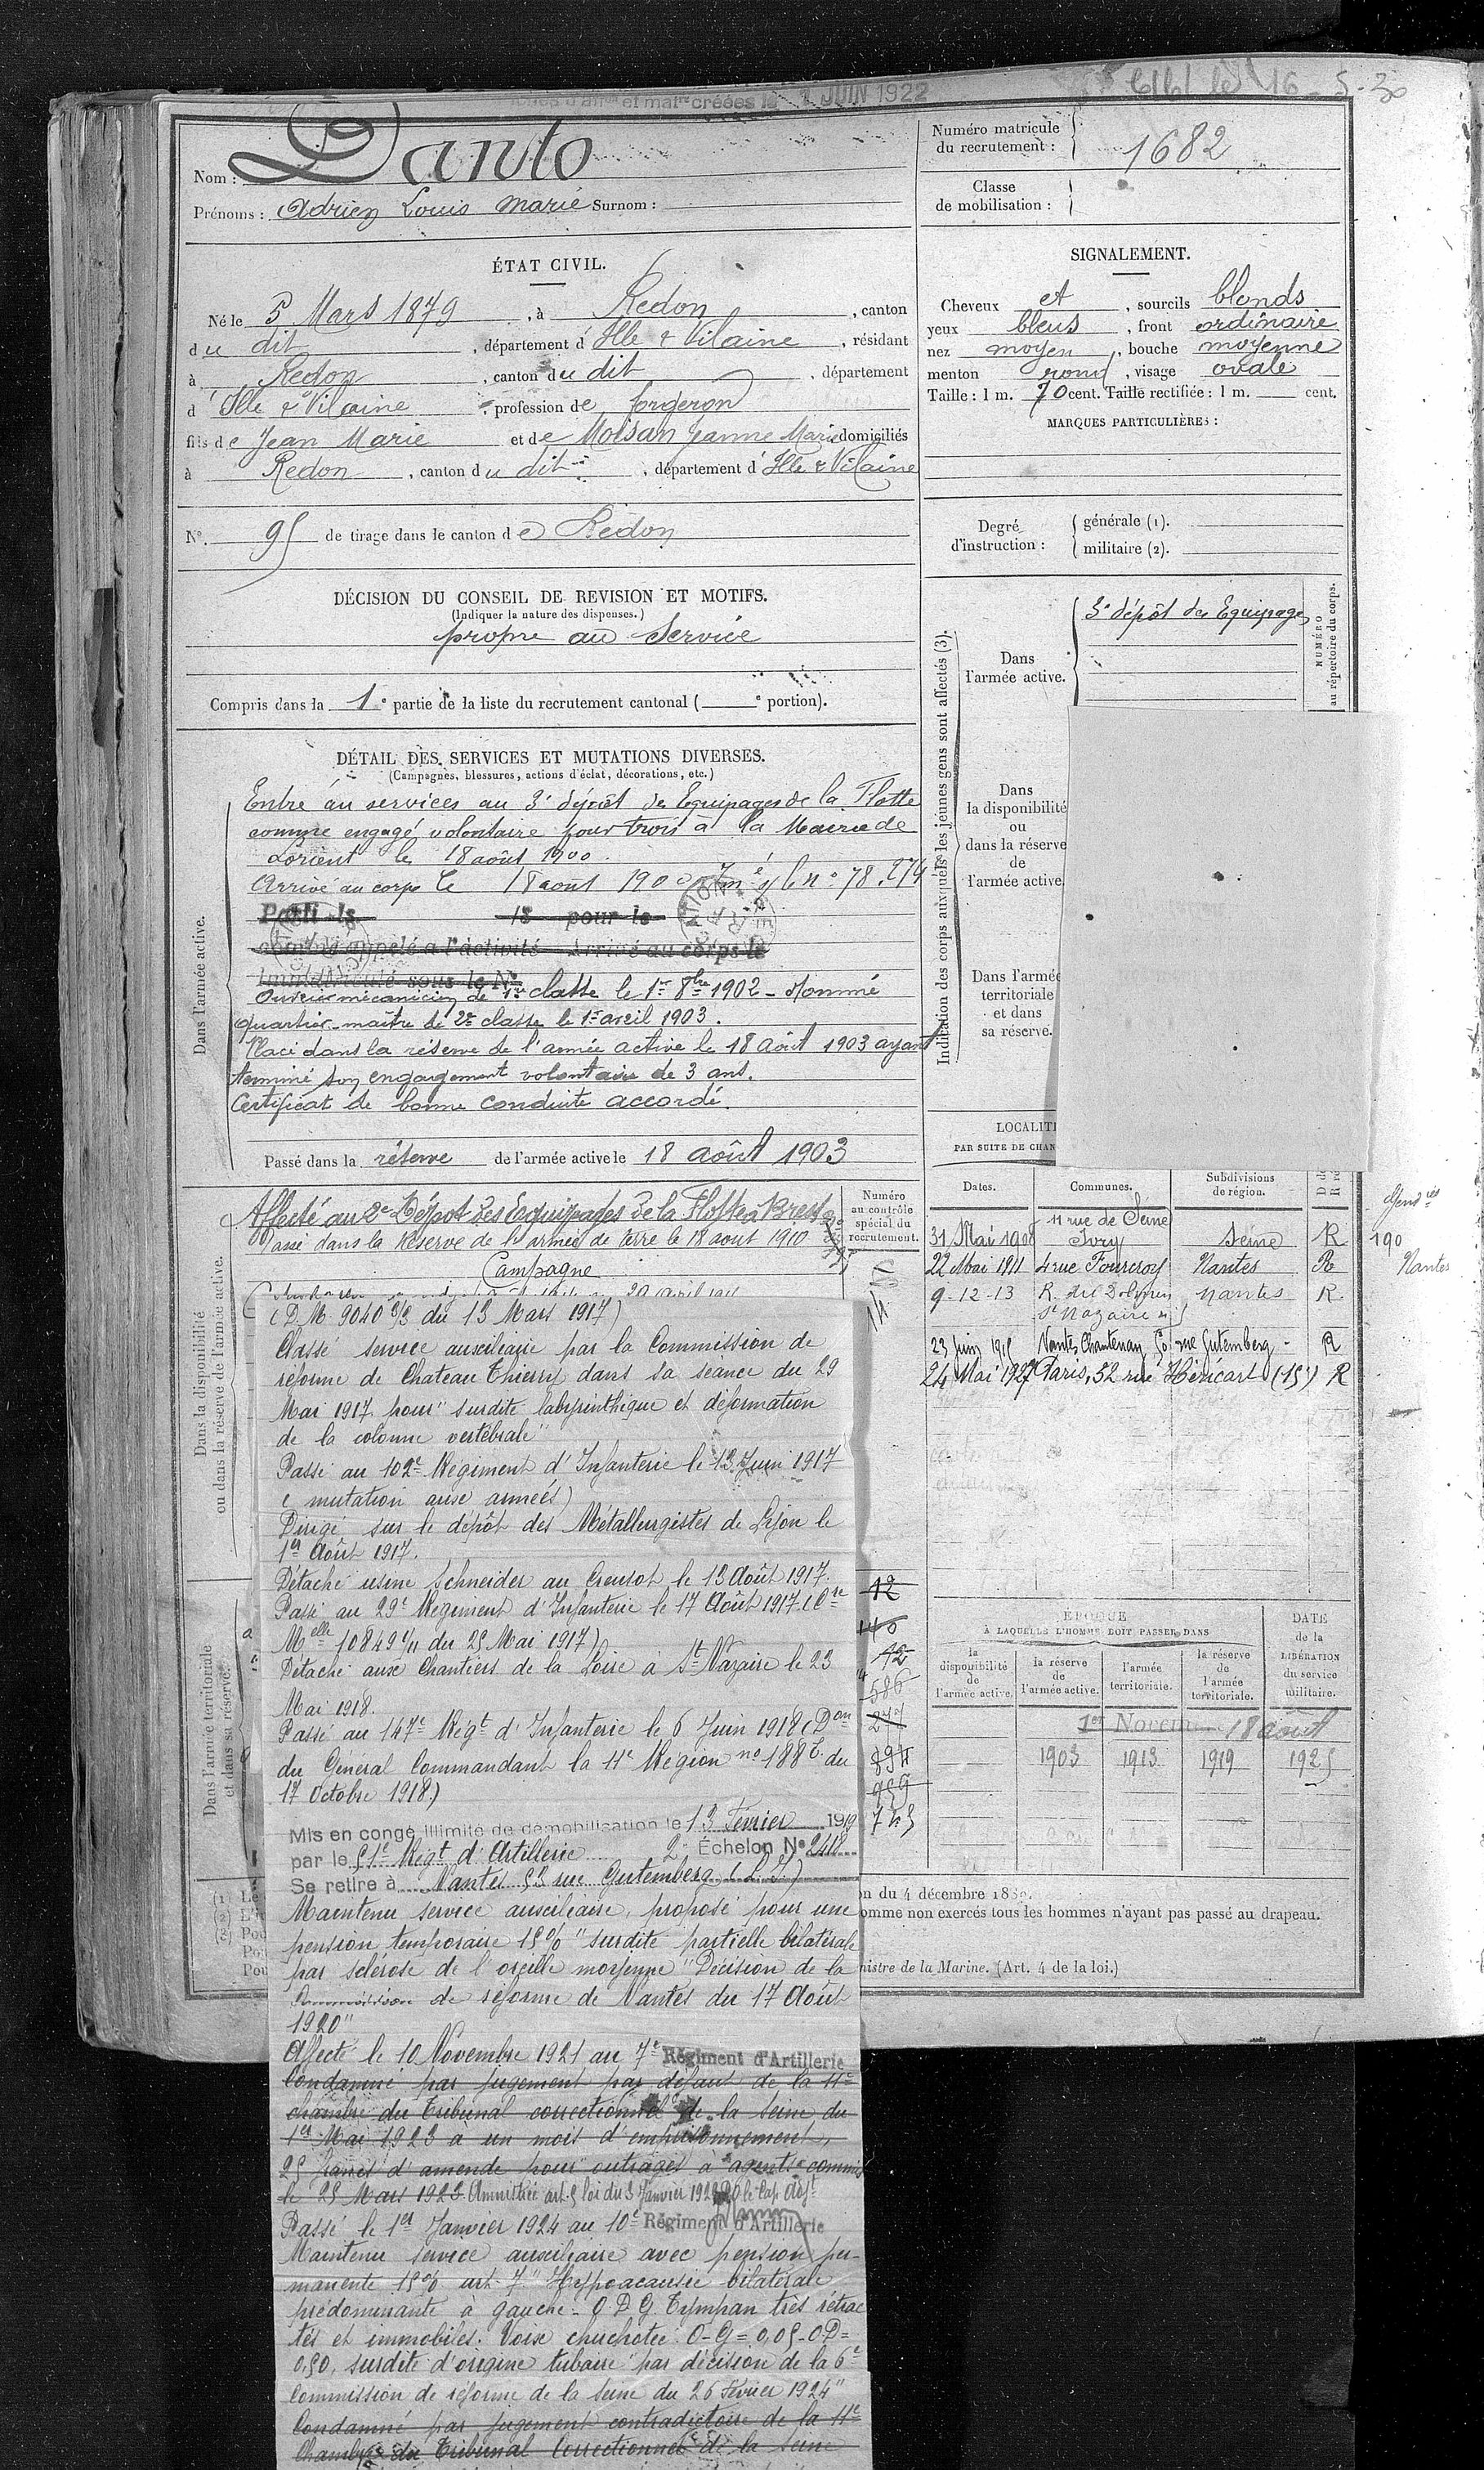 1 JUIN 1922
Nom : Danto
Prénoms : Adrien Louis Marie Surnom :
Numéro matricule
du recrutement : 1682
Classe
de mobilisation :
ÉTAT CIVIL.
Né le 5 Mars 1879, à Redon, canton
du dit, département d'Ille & Vilaine, résidant
à Redon, canton du dit, département
d'Ille & Vilaine profession de forgeron
fils de Jean Marie et de Moisan Jeanne Marie domiciliés
à Redon, canton du dit, département d'Ille & Vilaine
N°. 95 de tirage dans le canton de Redon
SIGNALEMENT.
Cheveux et, sourcils blonds
yeux bleus, front ordinaire
nez moyen, bouche moyenne
menton rond, visage ovale
Taille : 1 m. 70 cent. Taille rectifiée : 1 m. cent.
MARQUES PARTICULIÈRES :
Degré
d'instruction :
générale (1).
militaire (2).
DÉCISION DU CONSEIL DE REVISION ET MOTIFS.
(Indiquer la nature des dispenses.)
propre au service
Compris dans la 1e partie de la liste du recrutement cantonal ( e portion).
Indication des corps auxquels les jeunes gens sont affectés (3).
Dans
l'armée active.
3e dépôt des Equipages
NUMÉRO
au répertoire du corps.
Dans
la disponibilité
ou
dans la réserve
de
l'armée active
Dans l'armée
territoriale
et dans
sa réserve.
DÉTAIL DES SERVICES ET MUTATIONS DIVERSES.
(Campagnes, blessures, actions d'éclat, décorations, etc.)
Dans l'armée active.
Entré au services au 3e dépôt des Equipages de la Flotte
comme engagé volontaire pour trois à la Mairie de
Lorient le 18 août 1900.
Arrivé au corps le 18 août 1900 n° 78.274
Parti le 18 pour le
appelé à l'activité Arrivé au corps le
Immatriculé sous le N°
Ouvrier mécanicien de 1re classe le 1er 8bre 1902 - Nommé
quartier-maître de 2e classe le 1er avril 1903.
Placé dans la réserve de l'armée active le 18 Août 1903 ayant
terminé son engagement volontaire de 3 ans.
Certificat de bonne conduite accordé.
Passé dans la réserve de l'armée active le 18 août 1903
Dans la disponibilité
ou dans la réserve de l'armée active.
Affecté au 2e Dépôt des Equipages de la Flotte à Brest
Passé dans la Réserve de l'armée de terre le 18 août 1910
Campagne
Numéro
au contrôle
spécial du
recrutement.
LOCALIT
PAR SUITE DE CHAN
Dates. Communes. Subdivisions
de région.
31 Mai 1908 11 rue de Seine Ivry Seine R
22 Mai 1911 4 rue Fourcroy Nantes R
9-12-13 St Nazaire Nantes R
23 Juin 1915 Nantes Chantenay rue Gutemberg - R
24 Mai 1927 Paris, 52 rue Héricart (15e) R
190
Nantes
(D.M. 9040 3/3 du 13 Mars 1917)
Classé service auxiliaire par la Commission de
réforme de Chateau Thierry dans sa séance du 29
Mai 1917 pour "surdité labyrinthique et déformation
de la colonne vertébrale"
Passé au 102e Régiment d'Infanterie le 13 Juin 1917
(mutation aux armées)
Dirigé sur le dépôt des Métallurgistes de Lyon le
1er Août 1917.
Détaché usine Schneider au Creusot le 13 Août 1917.
Passé au 29e Régiment d'Infanterie le 17 Août 1917 (Cre
Melle 10849 1/11 du 25 Mai 1917)
Détaché aux Chantiers de la Loire à St Nazaire le 23
Mai 1918.
Passé au 147e Régt d'Infanterie le 6 Juin 1918 (Don
du Général Commandant la 11e Région n° 188 E. du
17 Octobre 1918.)
Mis en congé illimité de démobilisation le 13 Février 1919
par le 51e Régt d'Artillerie 2e Échelon N° 2418
Se retire à Nantes 53 rue Gutemberg (L.I.)
Maintenu service auxiliaire, proposé pour une
pension temporaire 15% "surdité partielle bilatérale
par sclérose de l'oreille moyenne" Décision de la
Commission de réforme de Nantes du 17 Août
1920"
Affecté le 10 Novembre 1921 au 7e Régiment d'Artillerie
Condamné par jugement par défaut de la 11e
chambre du Tribunal correctionnel de la Seine du
1er Mai 1923 à un mois d'emprisonnement,
25 francs d'amende pour outrages à agents commis
le 25 Mars 1923. Amnistiée art. 5 loi du 3 Janvier 1925 le Cap. Adjt
Passé le 1er Janvier 1924 au 10e Régiment d'Artillerie
Maintenu service auxiliaire avec pension per-
manente 15% art. 7 "Hypoacousie bilatérale
prédominante à gauche - O D G. Tympan très rétrac
tés et immobiles. Voix chuchotée : O-G = 0,05 - O.D =
0,50, surdité d'origine tubaire par décision de la 6e
Commission de réforme de la Seine du 26 Février 1924"
Condamné par jugement contradictoire de la 11e
Chambre du Tribunal Correctionnel de la Seine
Dans l'armée territoriale
et dans sa réserve.
12
12
586
274
894
959
745
ÉPOQUE
À LAQUELLE L'HOMME DOIT PASSER DANS
DATE
de la
LIBÉRATION
du service
militaire.
la
disponibilité
de
l'armée active.
la réserve
de
l'armée active.
l'armée
territoriale.
la réserve
de
l'armée
territoriale.
1er Novem 18 août
1903 1913 1919 1925
n du 4 décembre 188
omme non exercés tous les hommes n'ayant pas passé au drapeau.
nistre de la Marine. (Art. 4 de la loi.)